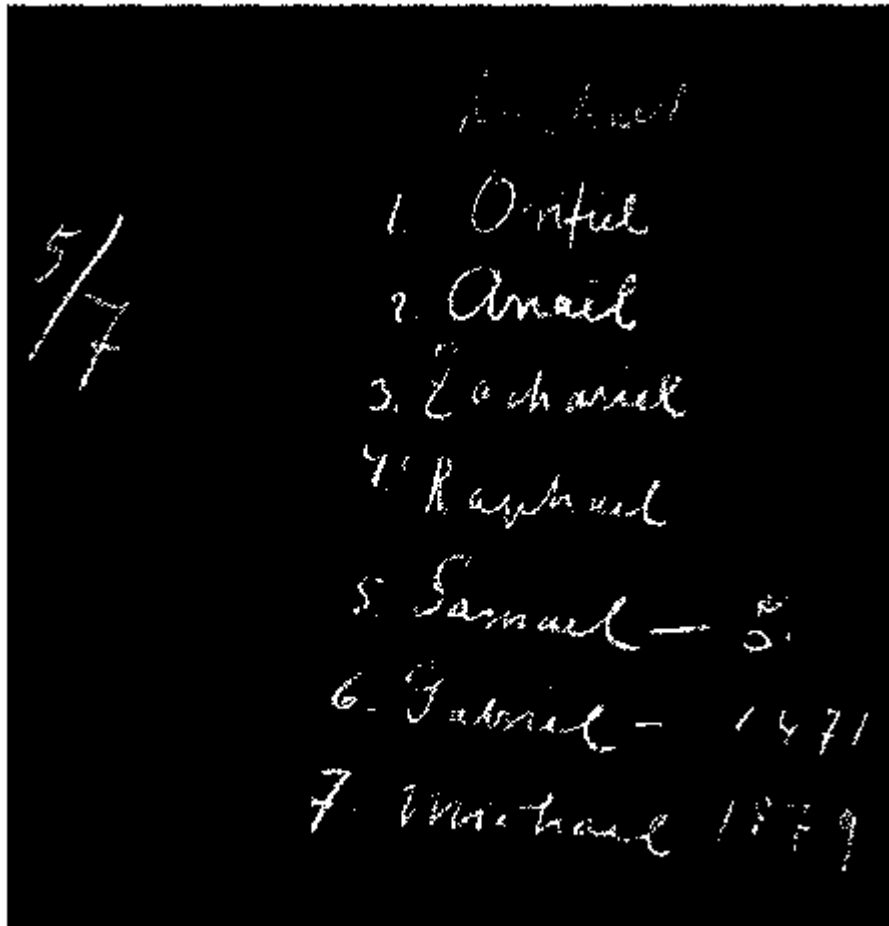 5/7
1. Orifiel
2. Anaël
3. Zachariel
4. Raphael
5. Samael —
6. Gabriel – 1471
7. Michael 1879